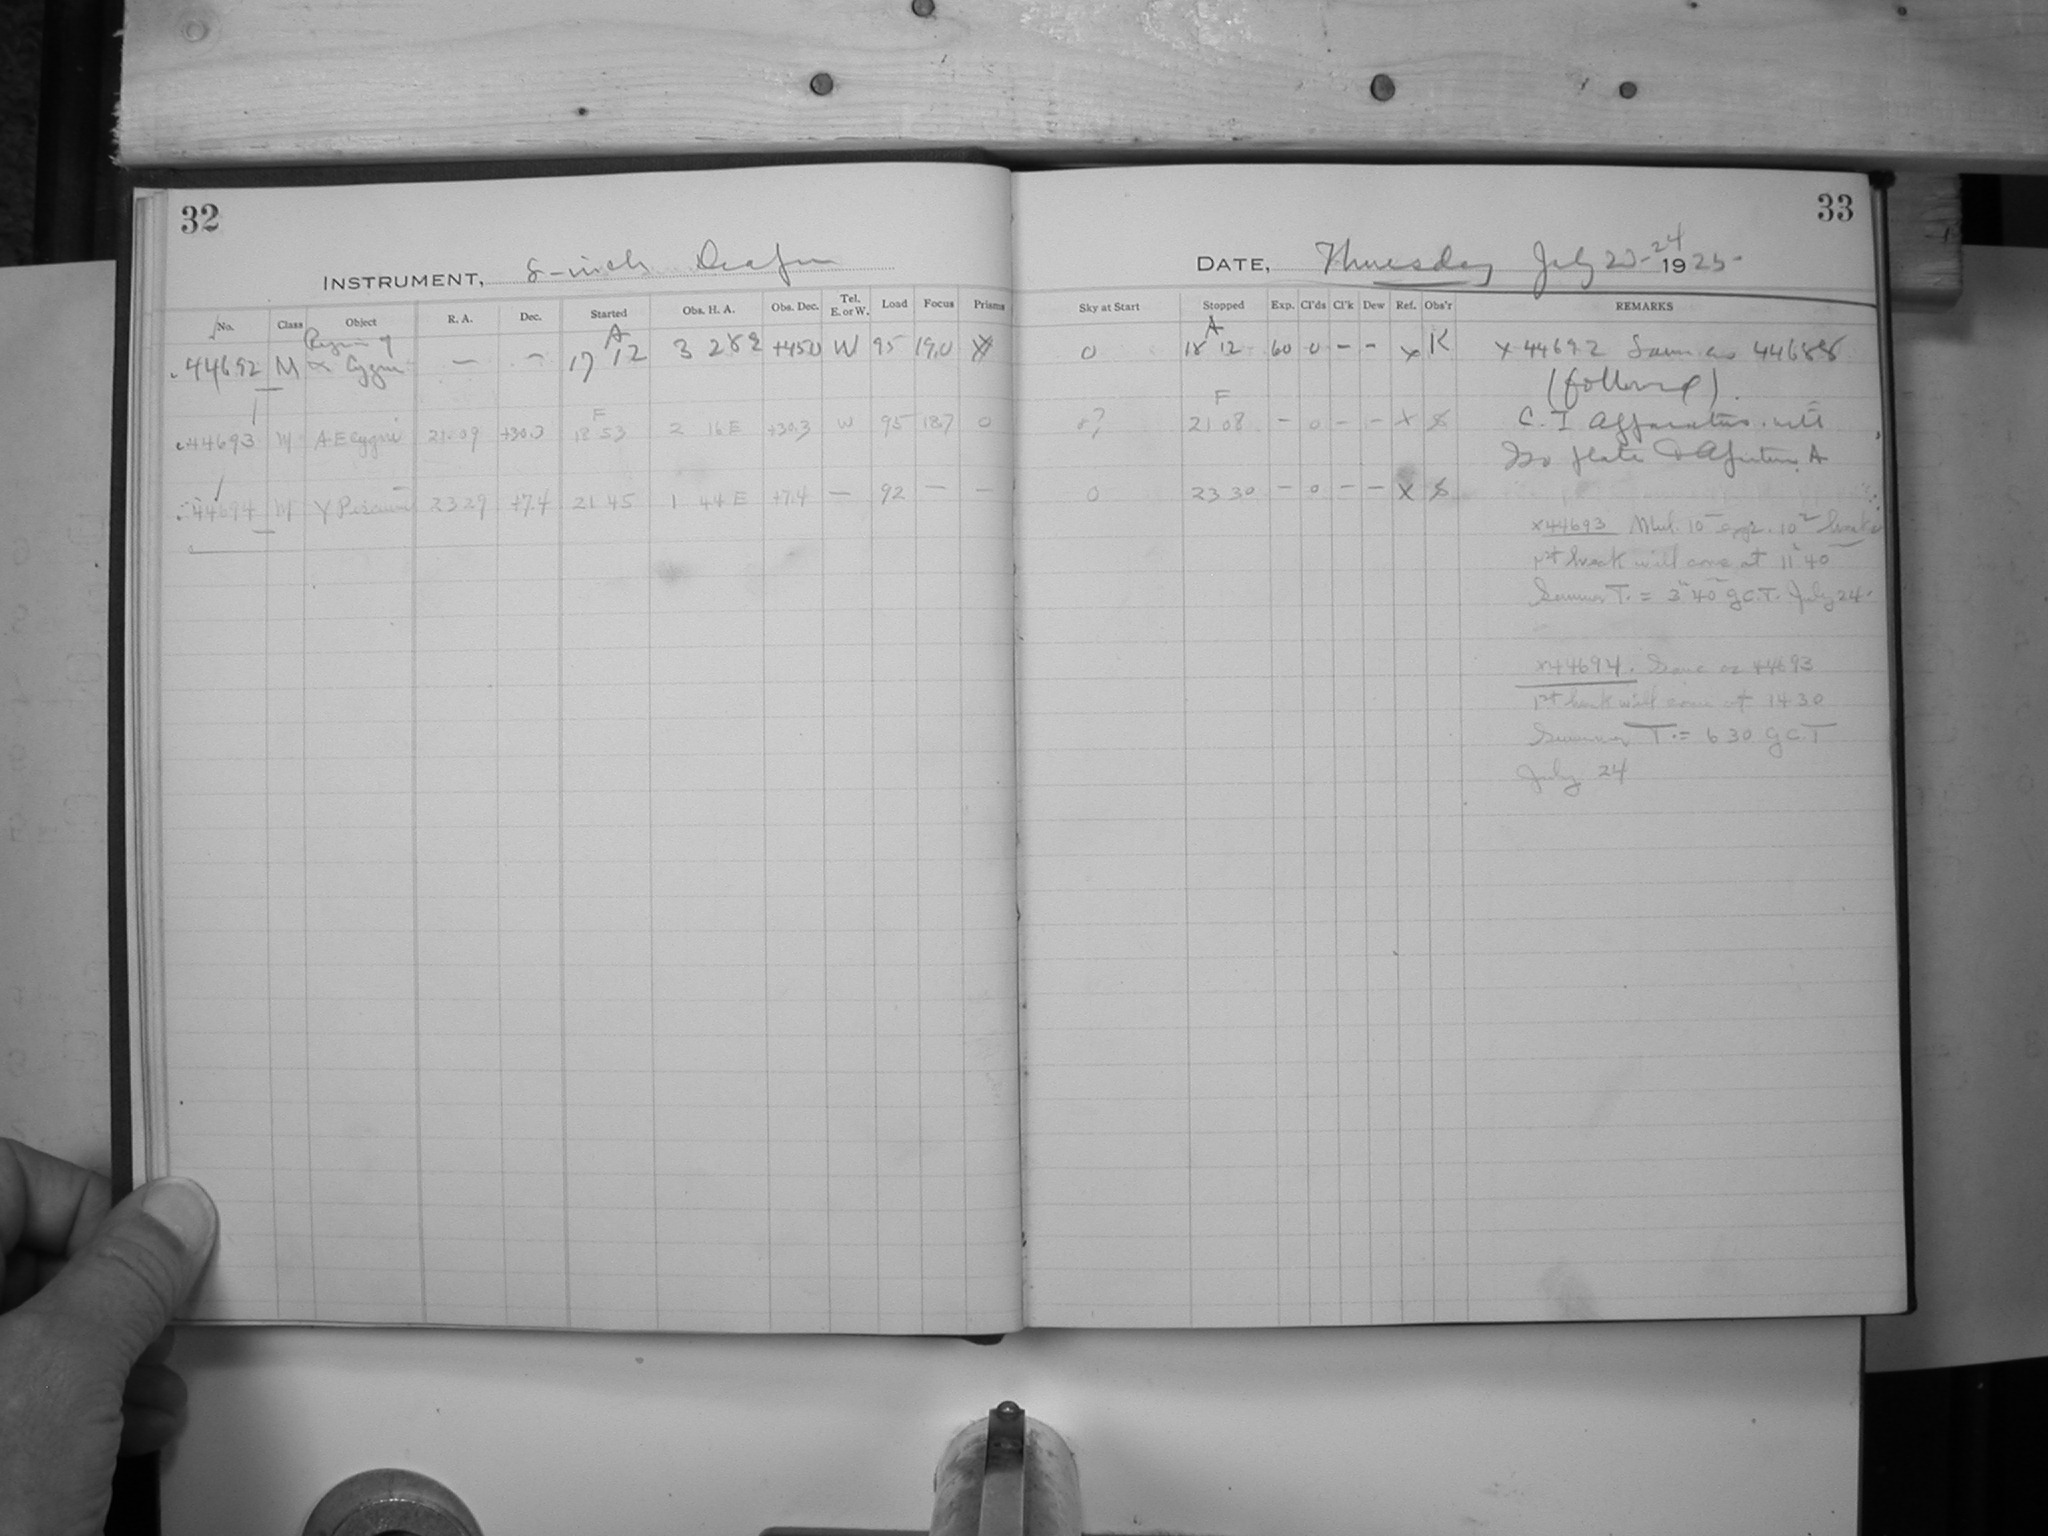 32
INSTRUMENT, 8-inch Draper
No. Class Object R. A. Dec. Started Obs. H. A. Obs. Dec. Tel. E. or W. Load Focus Prisms
44692 M Region of α Cygni — — A 17 12 3 28 W +45.0 W 95 19.0
44693 M AE Cygni 21.09 +30.3 F 18 53 2 16 E +30.3 W 95 18.7 0
44694 M Y Piscium 23 29 +7.4 21 45 1 44 E +7.4 — 92 — —
33
DATE, Thursday July 23-24 1925
Sky at Start Stopped Exp. Cl'ds Cl'k Dew Ref. Obs'r REMARKS
0 A 18 12 60 0 — — x K x 44692 Same as 44688
(following)
0? F 21 08 — 0 — — x C. I Apparatus. with
Iso plate & Aperture A
0 23 30 — 0 — — x
x44693 Mul. 10 exps. 10 breaks
1st break will come at 11 40
Summer T. = 3 40 G.C.T. July 24.
x44694. Same as 44693
1st break will come at 14 30
Summer T. = 6 30 G C.T
July 24